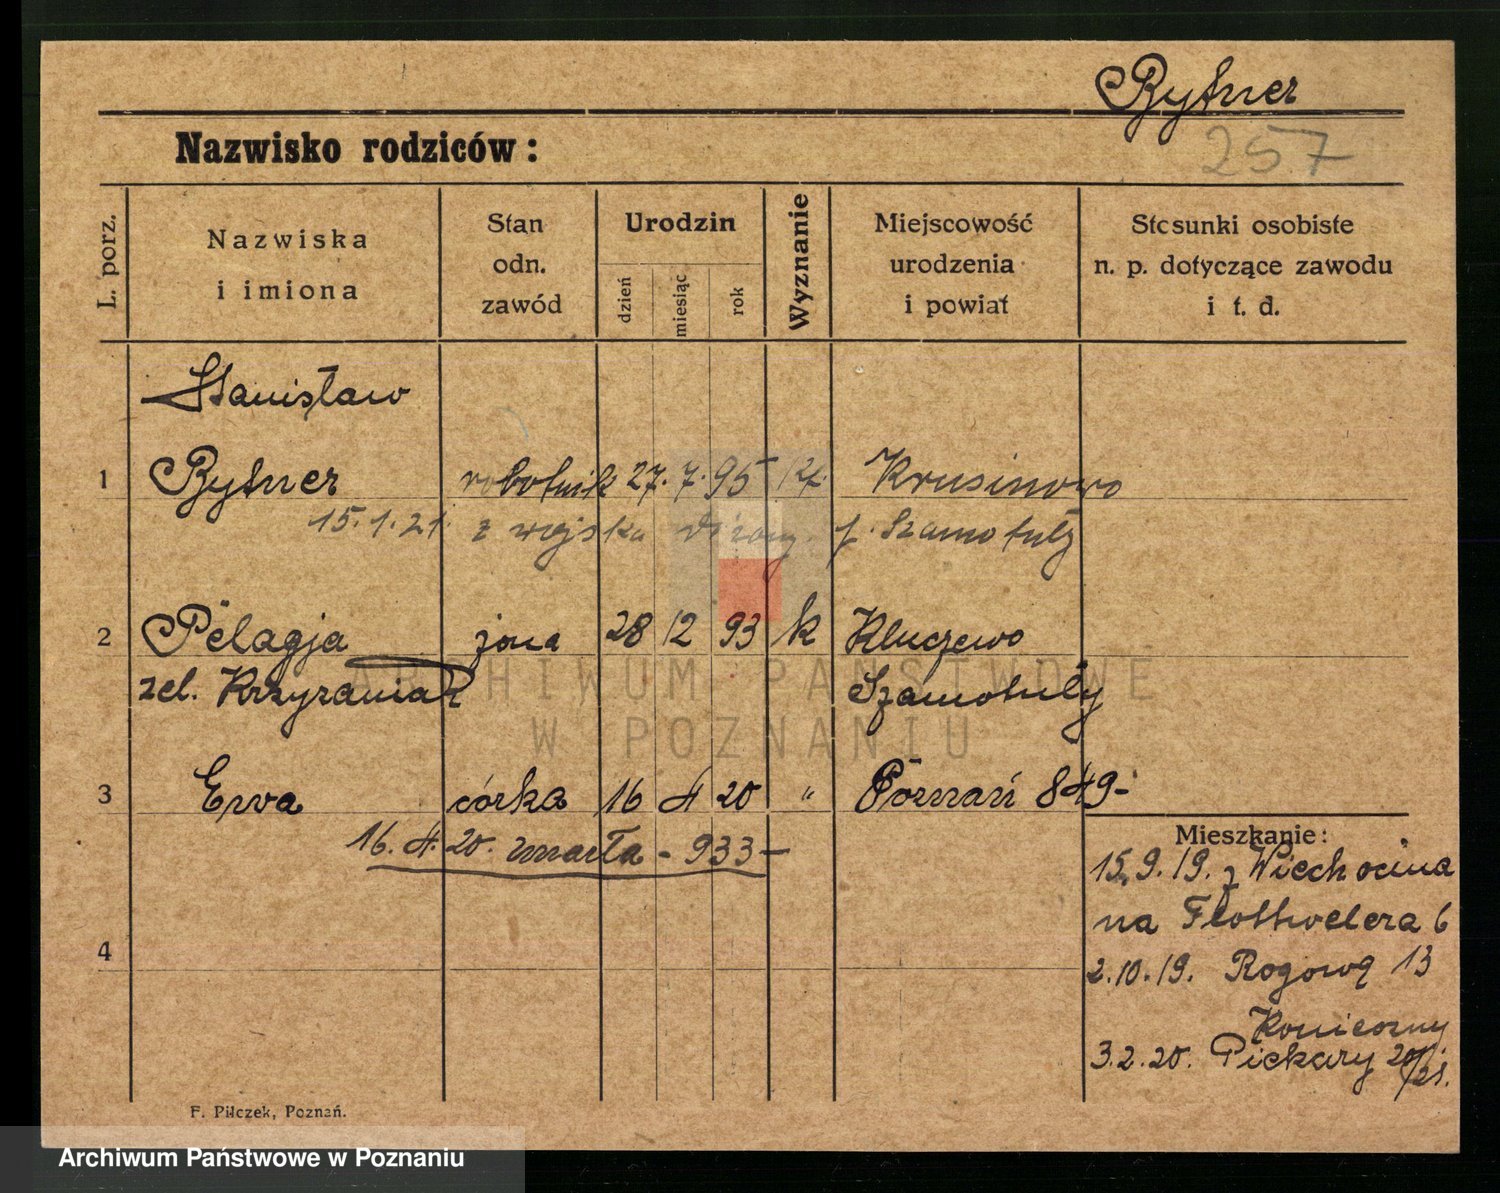 Rytner
257
Nazwisko rodziców:
L. porz.
Nazwiska
i imiona
Stan
odn.
zawód
Urodzin
dzień
miesiąc
rok
Wyznanie
Miejscowość
urodzenia
i powiat
Stosunki osobiste
n. p. dotyczące zawodu
i t. d.
Stanisław
1 Rytner robotnik 27. 7. 95 kat. Krusinowo
15.1.21. z wojska p. Szamotuły
2 Pelagja żona 28 12 93 k Kluczewo
zel. Krzyzaniak Szamotuły
3 Ewa córka 16 4 20 " Poznań 849-
16. 4. 20. zmarła - 933 -
Mieszkanie:
15.9.19. z Wiechocina
na Flottwelera 6
4
2.10.19. Rogową 13
3.2.20. Piekary 20/21.
F. Pilczek, Poznań.
ARCHIWUM PAŃSTWOWE
W POZNANIU
Archiwum Państwowe w Poznaniu